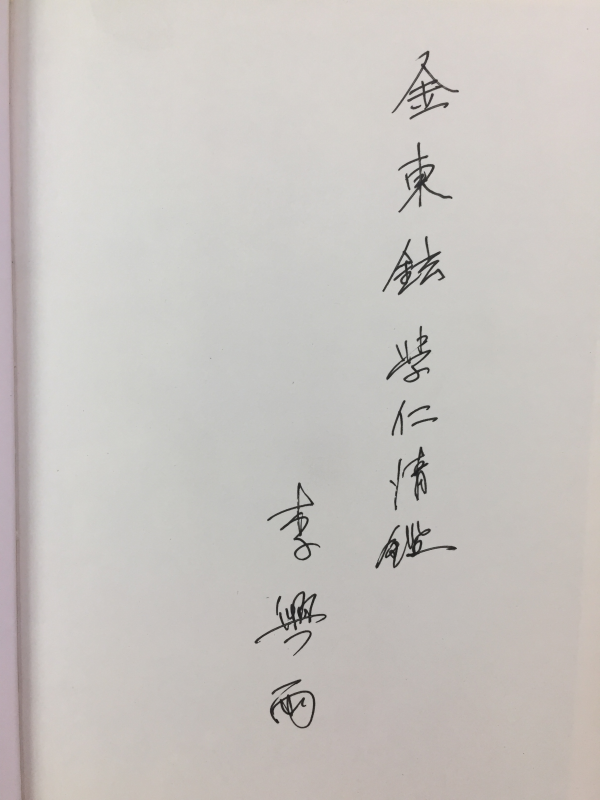 金東鉉學仁清鑑
李興雨